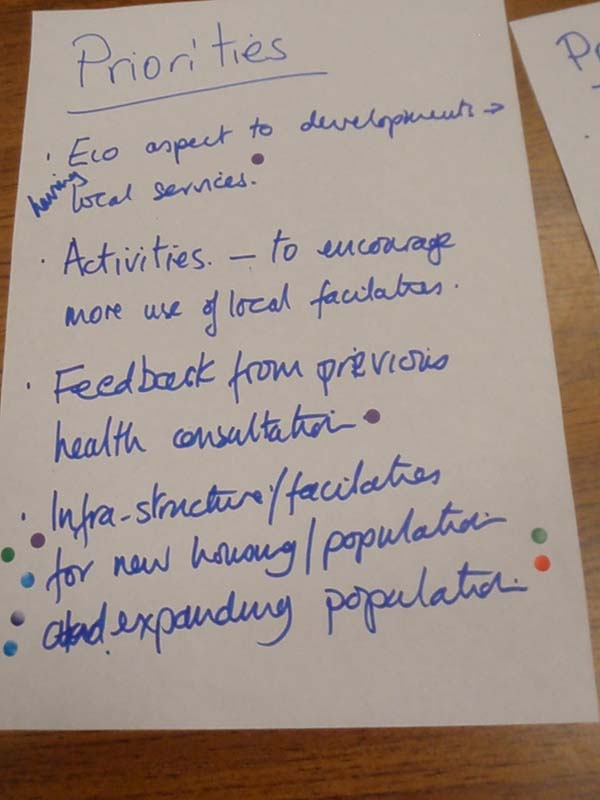 Priorities
· Eco aspect to developments →
having local services.
· Activities. – to encourage
more use of local facilaties.
· Feedback from previous
health consultation
· Infra-structure/facilaties
for new housing/population
and expanding population.
Pr